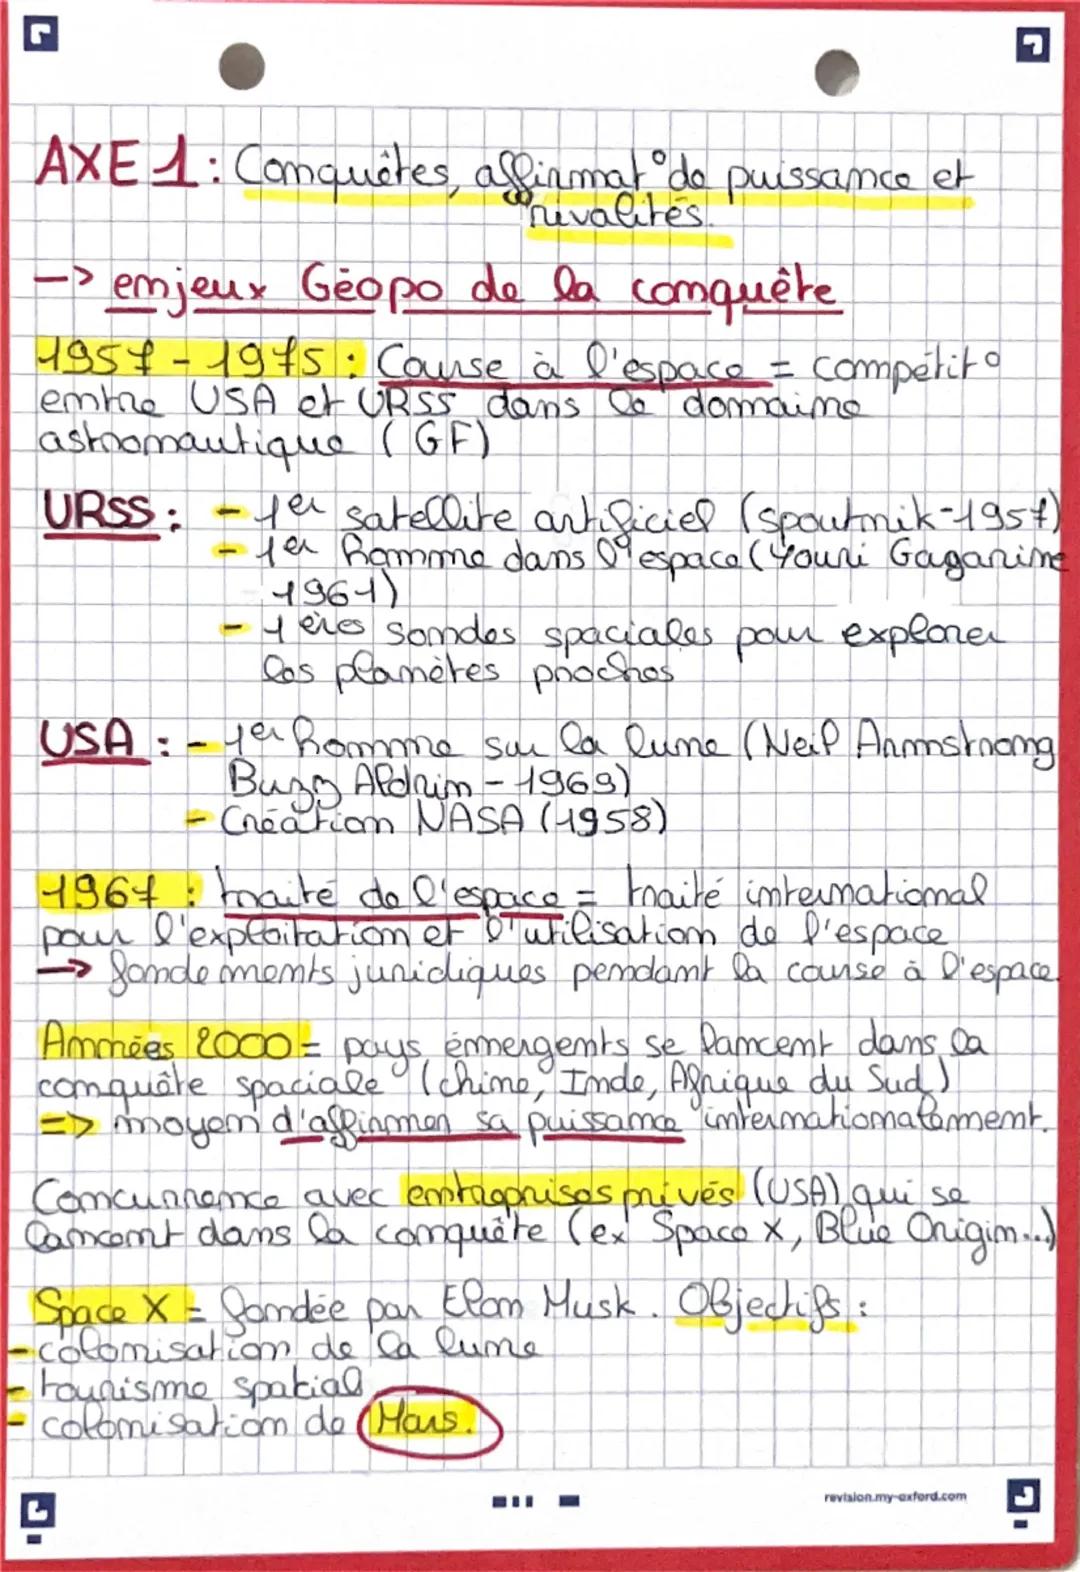 AXE 1 : Conquêtes, affirmat° de puissance et
rivalités.
-> enjeux Géopo de la conquête
1957 - 1975 : Course à l'espace = compétit°
entre USA et URSS dans le domaine
astronautique (GF)
URSS : - 1er satellite artificiel (spoutnik-1957)
- 1er homme dans l'espace (Youri Gagarine
1961)
- 1ères sondes spaciales pour explorer
les planètes proches
USA : - 1er homme sur la lune (Neil Armnstrong
Buzz Aldrin - 1969)
- Création NASA (1958)
1967 : traité de l'espace = traité international
pour l'exploitation et l'utilisation de l'espace
-> fondements juridiques pendant la course à l'espace.
Années 2000 = pays émergents se lancent dans la
conquête spaciale (chine, Inde, Afrique du Sud)
=> moyen d'affirmer sa puissance internationalemment.
Concurrence avec entreprises privés (USA) qui se
lancent dans la conquête (ex Space X, Blue Origin...)
Space X = fondée par Elon Musk. Objectifs :
- colonisation de la lune
- tourisme spatial
- colonisation de Mars.
revision.my-oxford.com